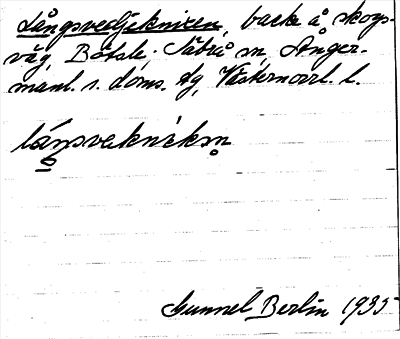 Långsvedjeknixen, backe å skogs-
väg, Bölsle. Säbrå sn, Ånger-
manl. s. doms. dg, Västernorrl. l.
lånsveknékm
Gunnel Berlin 1935